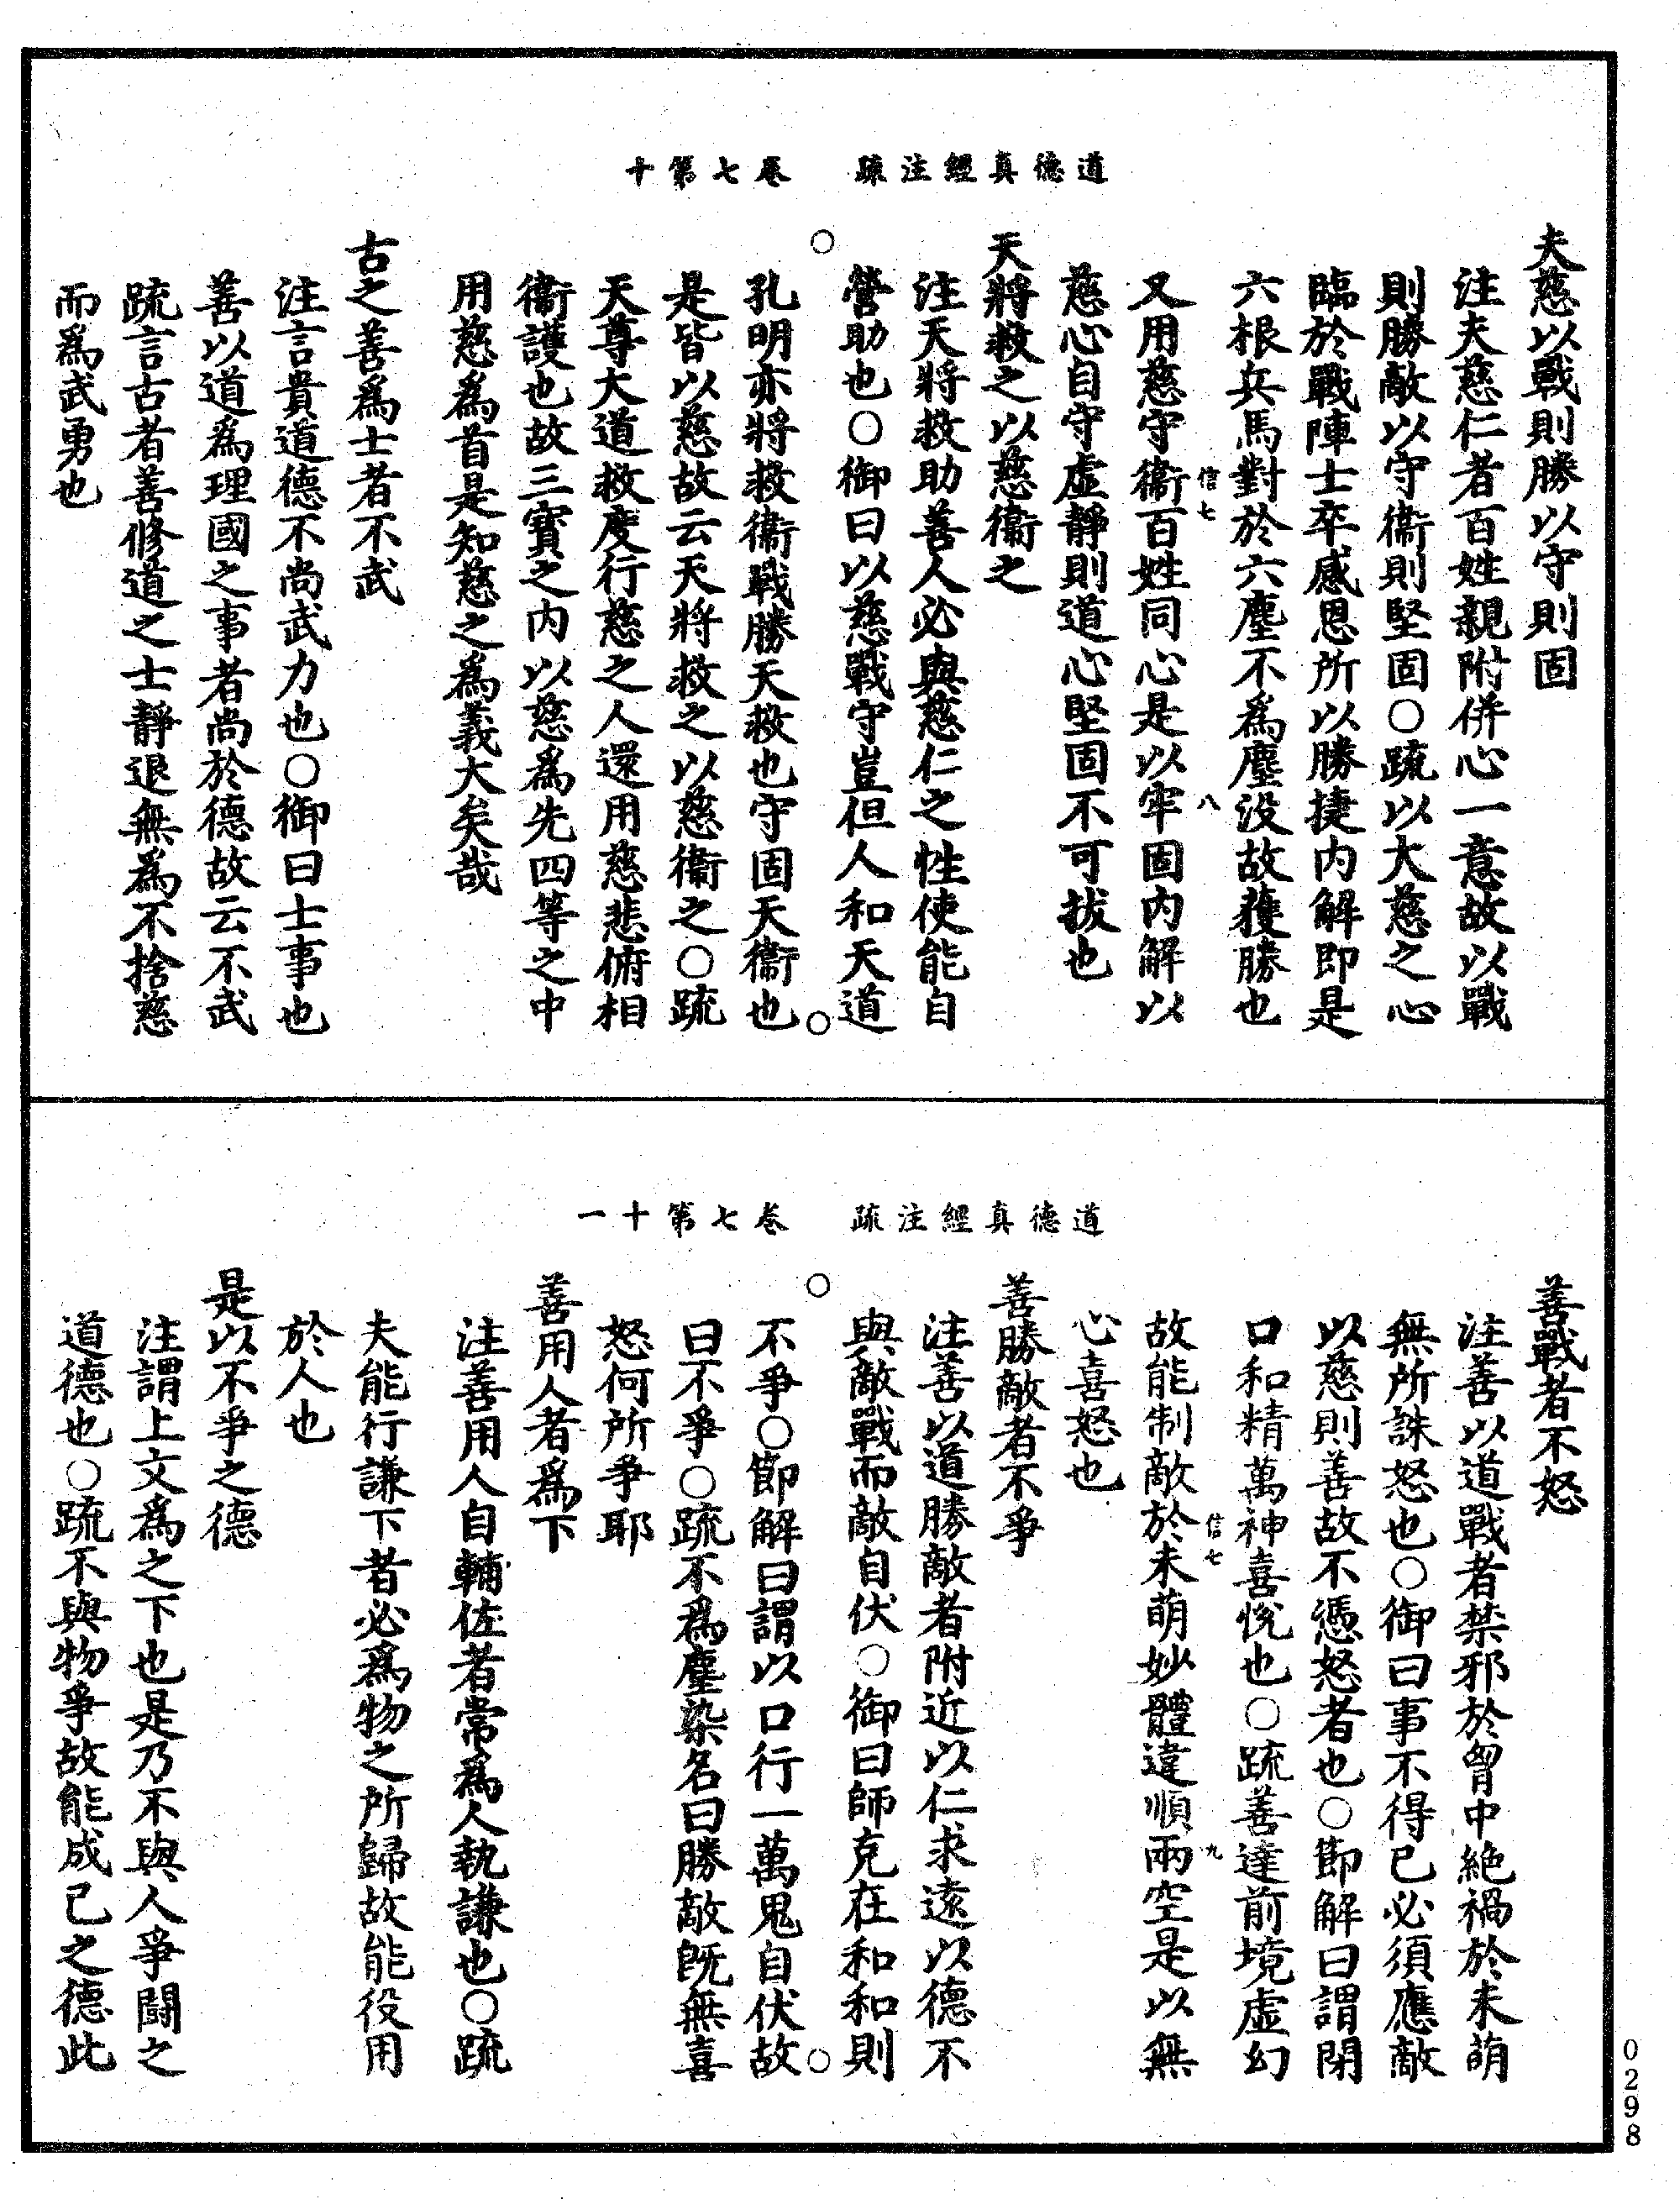 道德真經注疏　卷七第十
夫慈以戰則勝以守則固
注夫慈仁者百姓親附併心一意故以戰
則勝敵以守衞則堅固○疏以大慈之心
臨於戰陣士卒感恩所以勝捷内解即是
六根兵馬對於六塵不爲塵没故獲勝也
信七　八
又用慈守衞百姓同心是以牢固内解以
慈心自守虚靜則道心堅固不可拔也
天將救之以慈衞之
注天將救助善人必與慈仁之性使能自
營助也○御曰以慈戰守豈但人和天道
孔明亦將救衞戰勝天救也守固天衞也
是皆以慈故云天將救之以慈衞之○疏
天尊大道救度行慈之人還用慈悲俯相
衞護也故三寳之内以慈爲先四等之中
用慈爲首是知慈之爲義大矣哉
古之善爲士者不武
注言貴道德不尚武力也○御曰士事也
善以道爲理國之事者尚於德故云不武
疏言古者善修道之士靜退無爲不捨慈
而爲武勇也
道德真經注疏　卷七第十一
善戰者不怒
注善以道戰者禁邪於胷中絶禍於未萌
無所誅怒也○御曰事不得已必須應敵
以慈則善故不憑怒者也○節解曰謂閉
口和精萬神喜悅也○疏善達前境虚幻
信七　九
故能制敵於未萌妙體違順兩空是以無
心喜怒也
善勝敵者不爭
注善以道勝敵者附近以仁求遠以德不
與敵戰而敵自伏○御曰師克在和和則
不爭○節解曰謂以口行一萬鬼自伏故
曰不爭○疏不爲塵染名曰勝敵旣無喜
怒何所爭耶
善用人者爲下
注善用人自輔佐者常爲人執謙也○疏
夫能行謙下者必爲物之所歸故能役用
於人也
是以不爭之德
注謂上文爲之下也是乃不與人爭鬪之
道德也○疏不與物爭故能成已之德此
0298